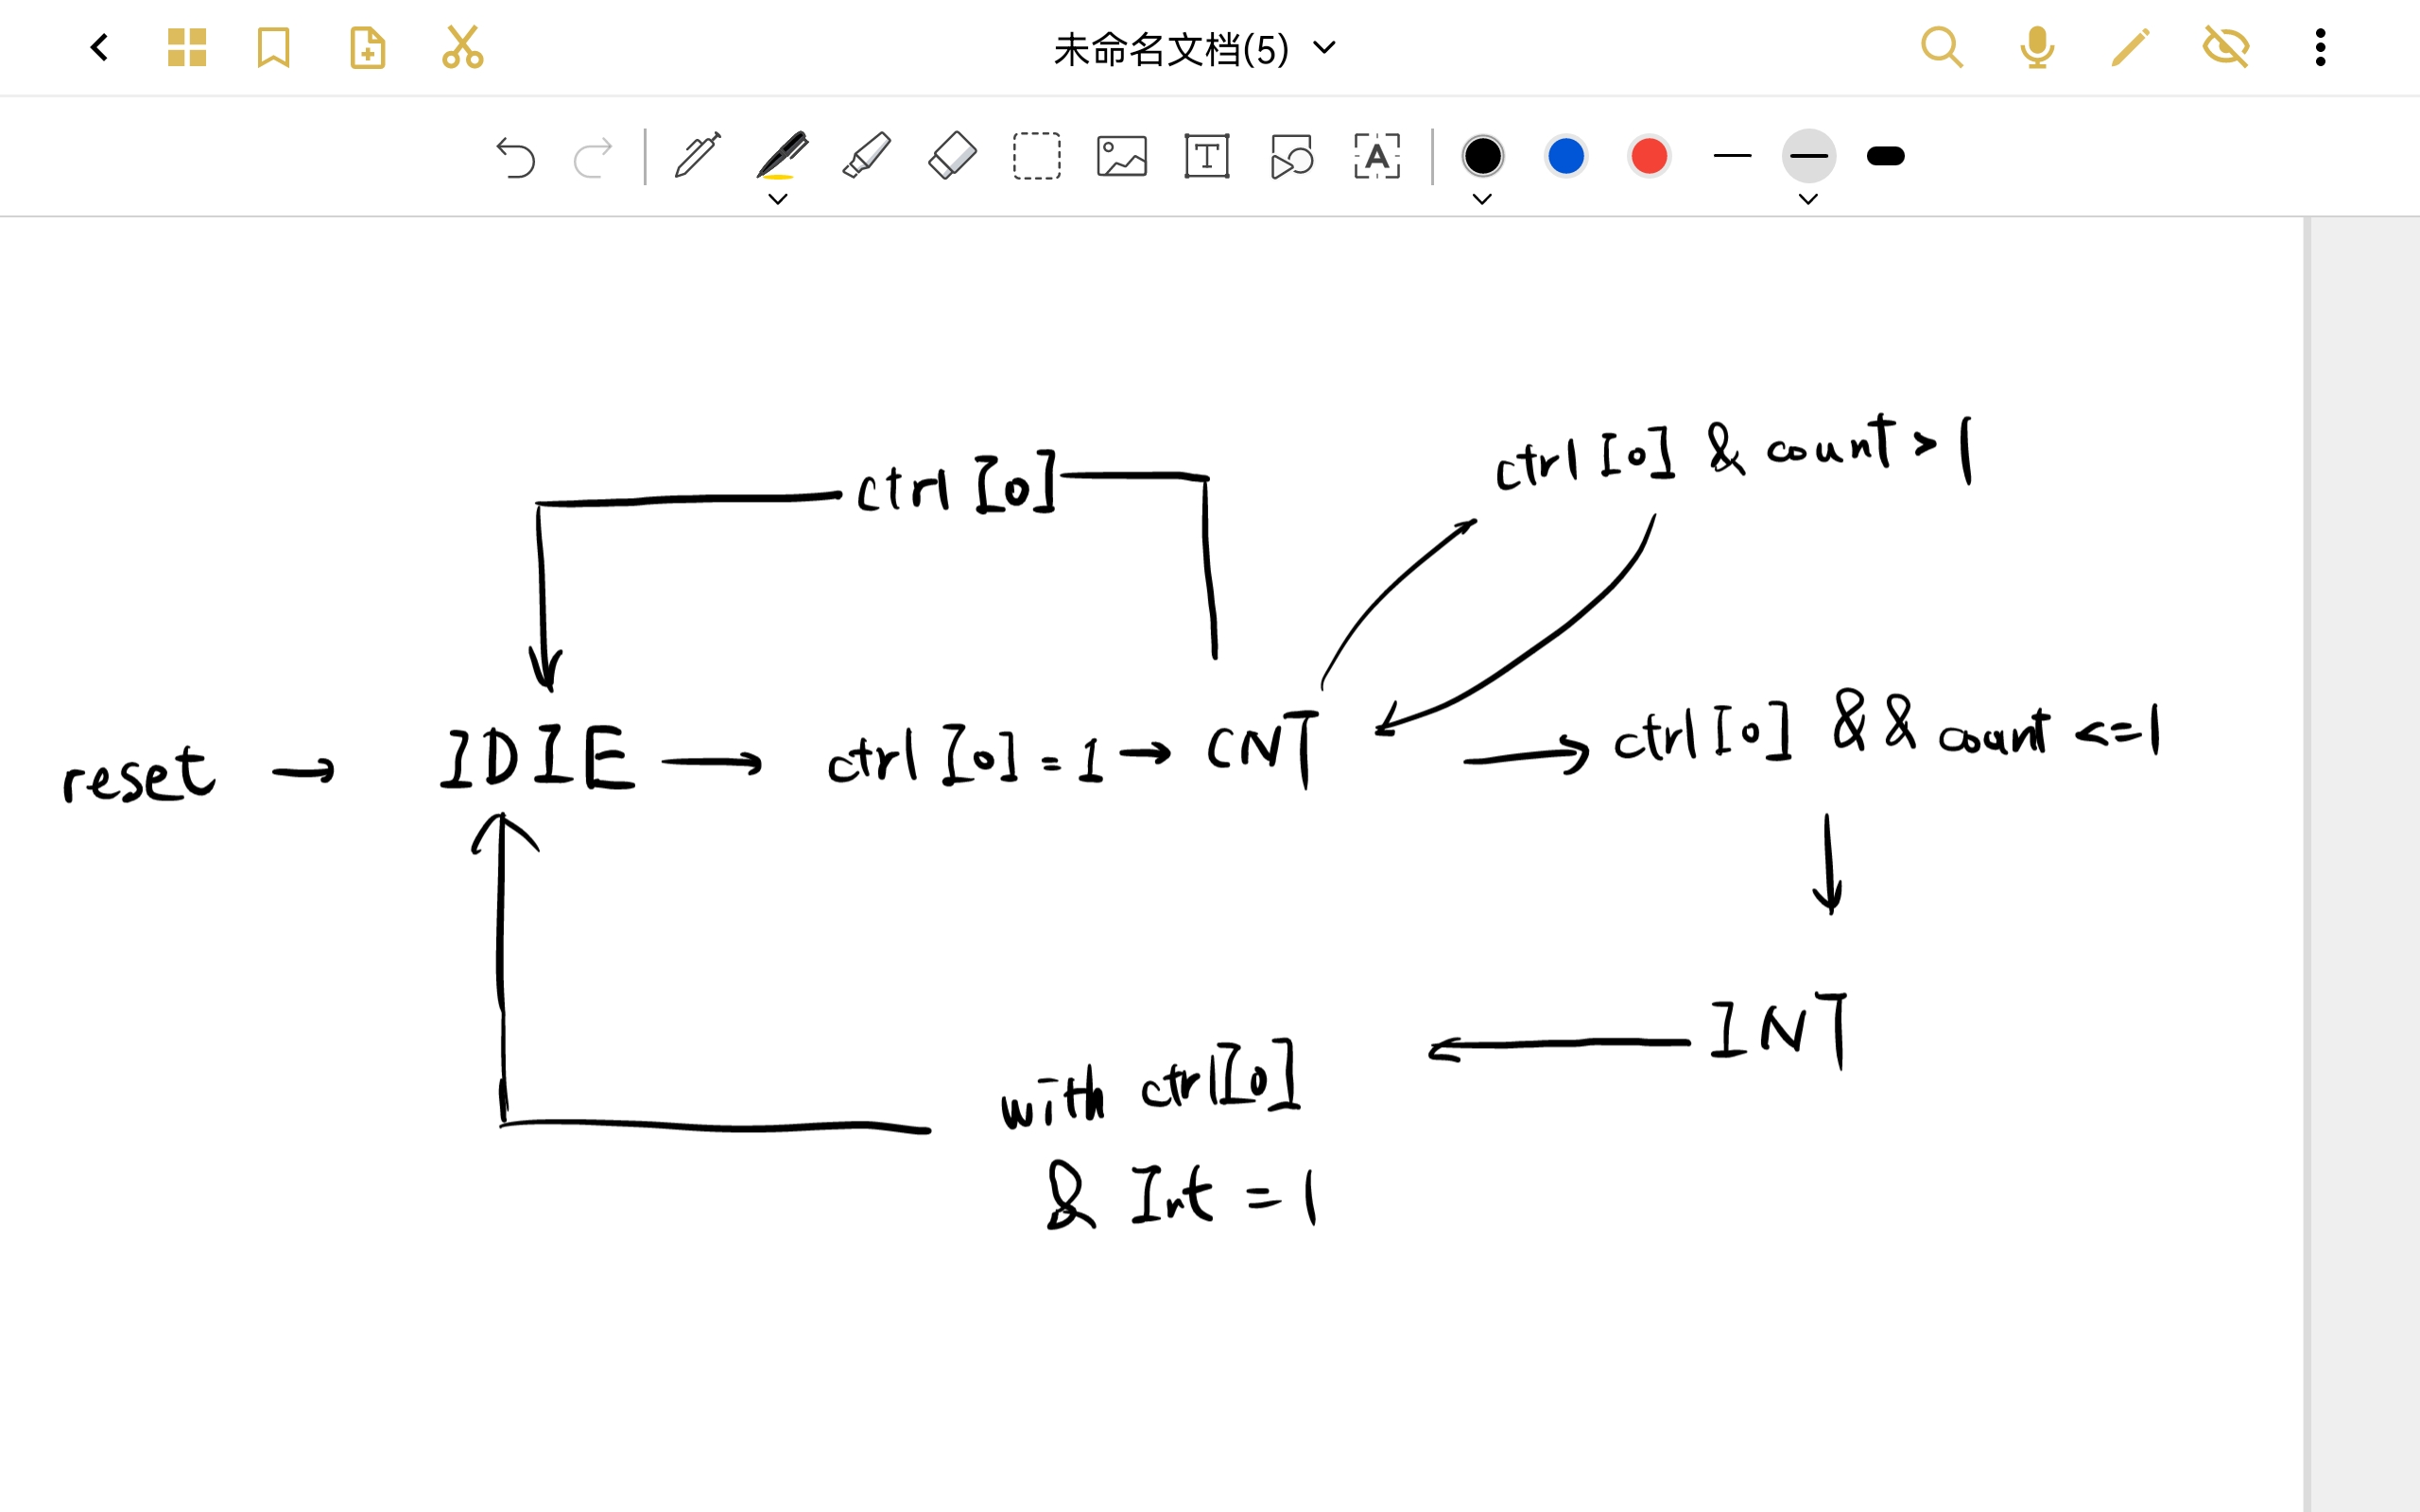 未命名文档(5)
T
A
ctrl [0] & count > 1
ctrl [0]
reset → IDIE → ctrl [0] = 1 → CNT → ctrl [0] && count <= 1
INT
with ctrl[0]
& Int = 1